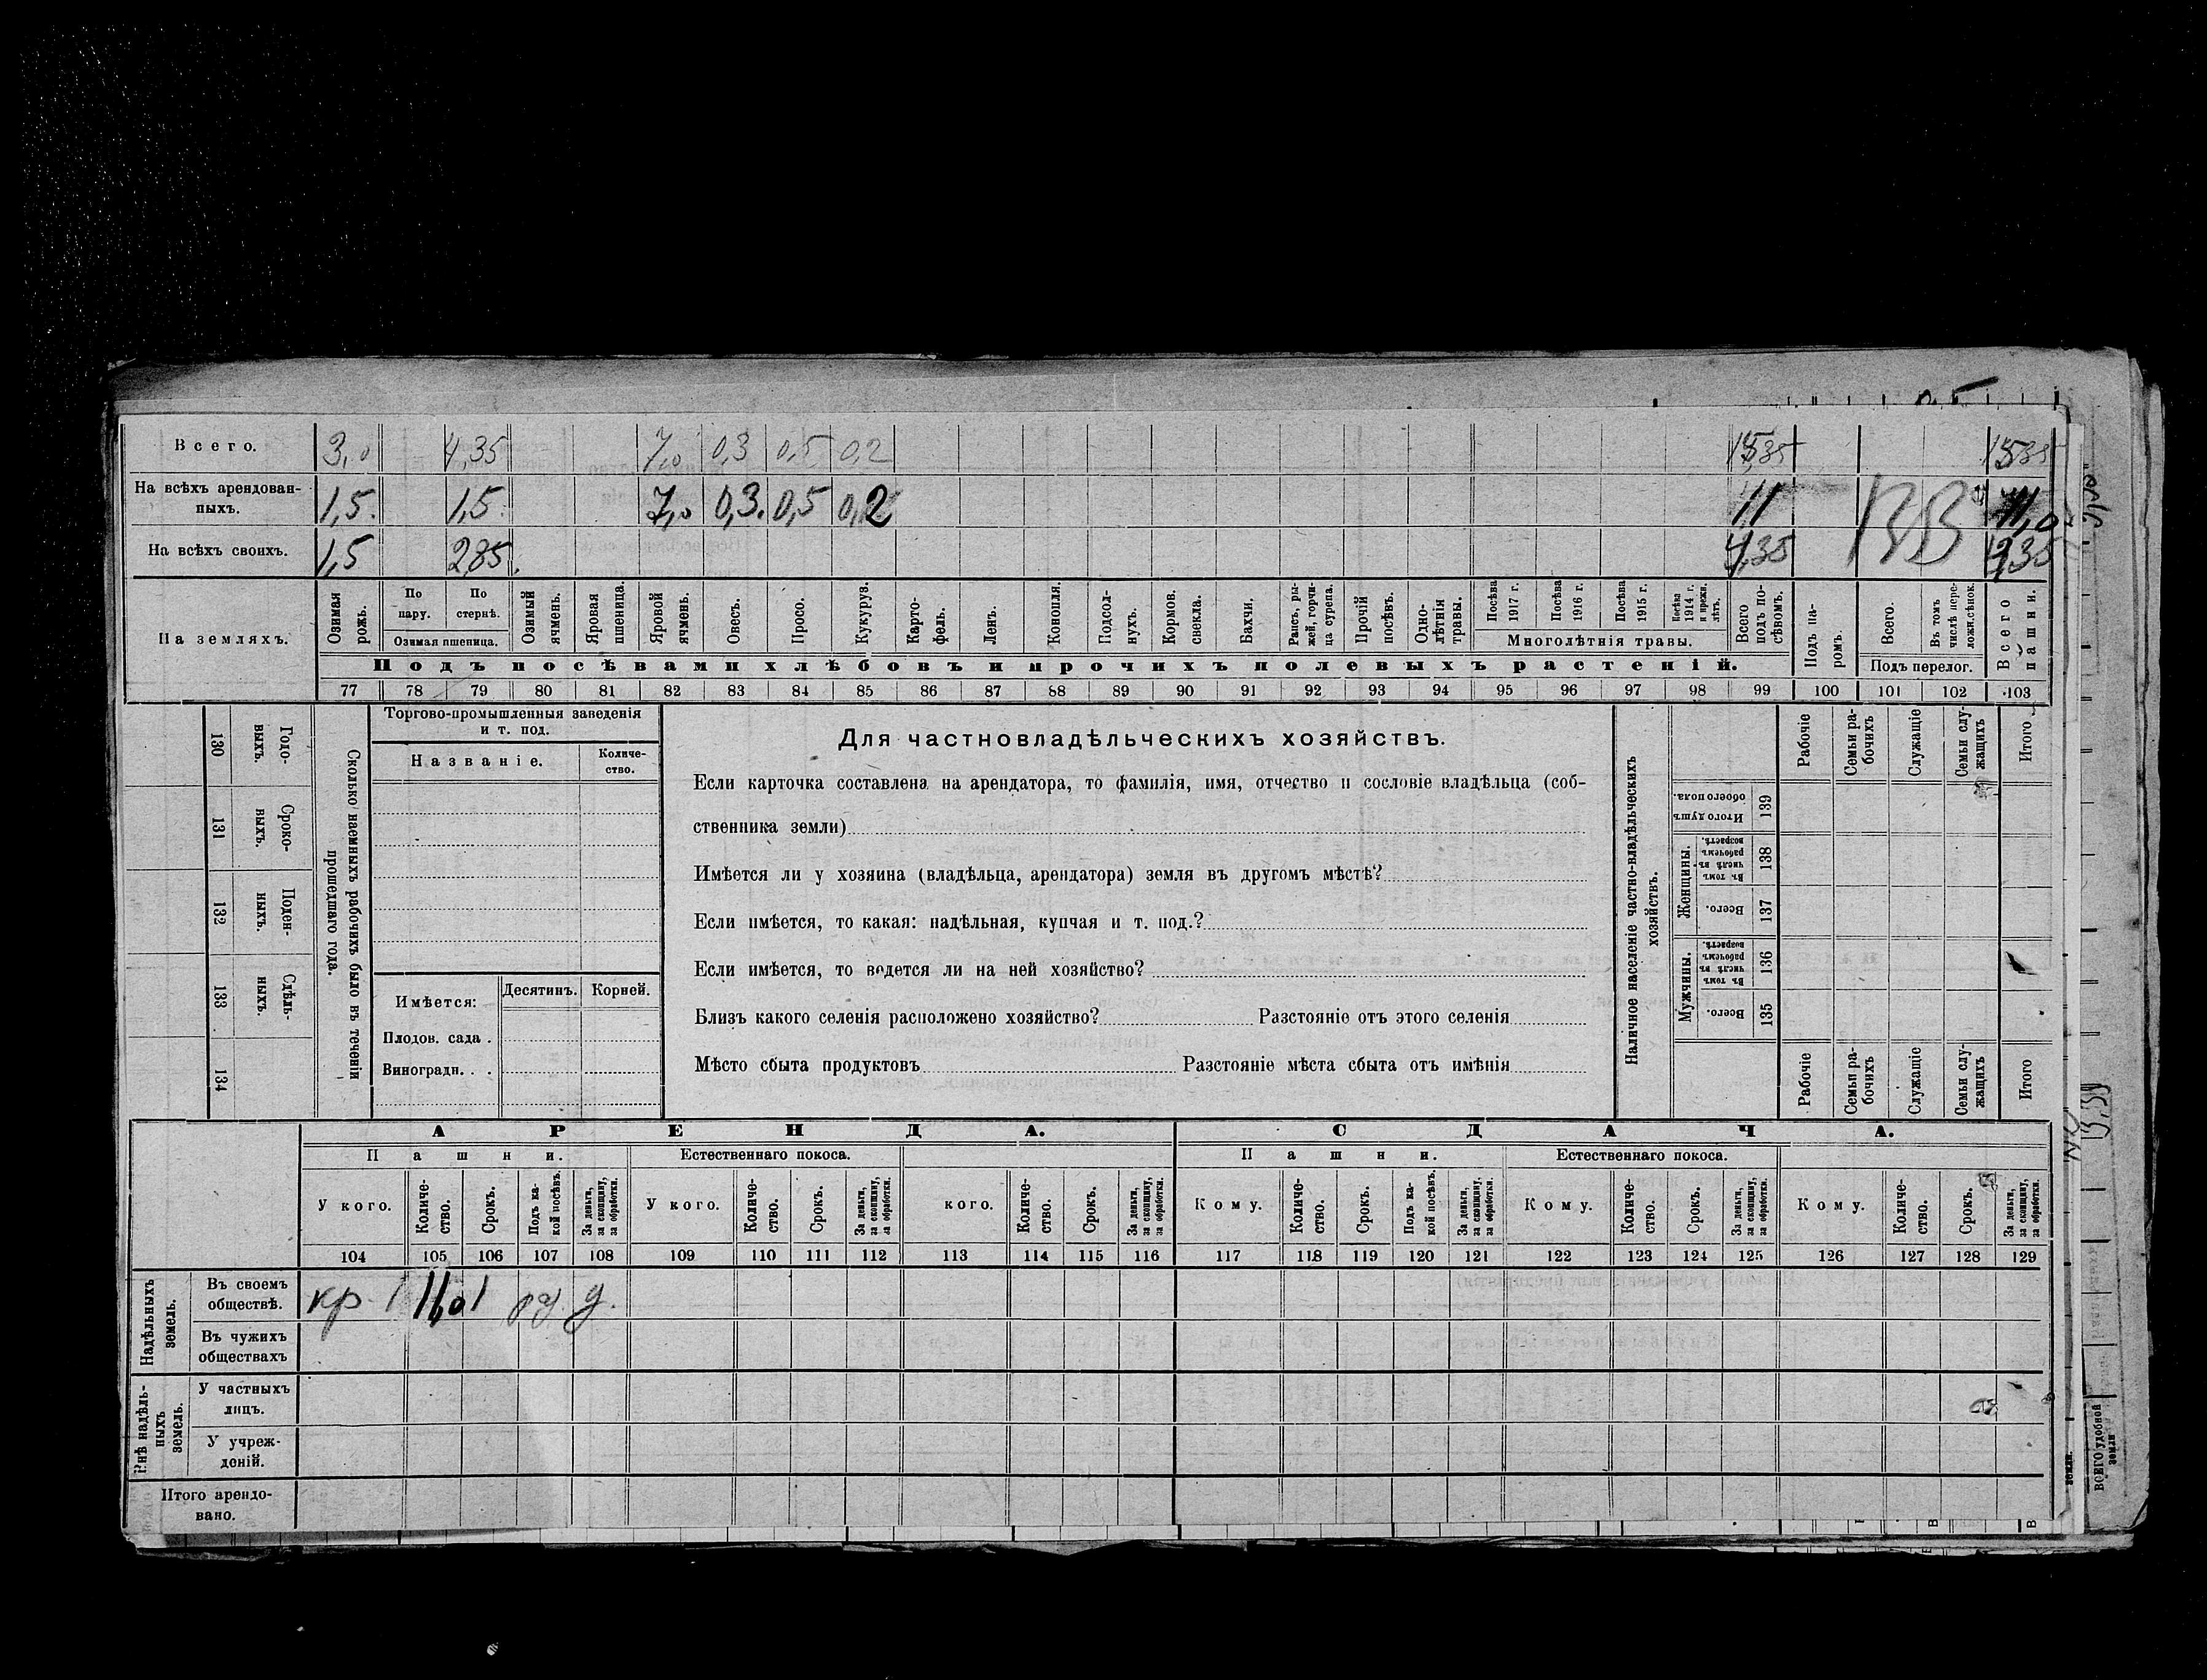 Всего. 3,0 4,35 7,0 0,3 0,5 0,2 15,35 15,35
На всѣхъ арендован-
ныхъ. 1,5. 1,5. 7,0 0,3. 0,5 0,2 11 11,0
На всѣхъ своихъ. 1,5 2,85. 4,35 4,35
На земляхъ.
Озимая рожь.
По пару.
По стернѣ.
Озимая пшеница.
Озимый ячмень.
Яровая пшеница.
Яровой ячмень.
Овесъ.
Просо.
Кукуруз.
Карто-
фель.
Ленъ.
Конопля.
Подсол-
нухъ.
Кормов. свекла.
Бахчи.
Рапсъ, ры-
жей, горчи-
ца сурепа.
Прочій посѣвъ.
Одно-
лѣтнія травы.
Посѣва 1917 г.
Посѣва 1916 г.
Посѣва 1915 г.
Посѣва 1914 г. и прежн. лѣтъ.
Многолѣтнія травы.
Всего подъ по-
сѣвомъ.
Подъ па-
ромъ.
Всего.
Въ томъ числѣ пере-
ложн.сѣнок.
Подъ перелог.
Всего пашни.
Подъ посѣвами хлѣбовъ и прочихъ полевыхъ растеній.
77 78 79 80 81 82 83 84 85 86 87 88 89 90 91 92 93 94 95 96 97 98 99 100 101 102 103
130 Годо-
выхъ.
131 Сроко-
ныхъ.
132 Поден-
ныхъ.
133 Сдѣль-
ныхъ.
134
Сколько наемныхъ рабочихъ было въ теченіи
прошедшаго года.
Торгово-промышленныя заведенія
и т. под.
Названіе.
Количе-
ство.
Имѣется:
Десятинъ. Корней.
Плодов. сада .
Виноградн. . .
Для частновладѣльческихъ хозяйствъ.
Если карточка составлена на арендатора, то фамилія, имя, отчество и сословіе владѣльца (соб-
ственника земли)
Имѣется ли у хозяина (владѣльца, арендатора) земля въ другомъ мѣстѣ?
Если имѣется, то какая: надѣльная, купчая и т. под.?
Если имѣется, то ведется ли на ней хозяйство?
Близъ какого селенія расположено хозяйство? Разстояніе отъ этого селенія
Мѣсто сбыта продуктовъ Разстояніе мѣста сбыта отъ имѣнія
Наличное населеніе частно-владѣльческихъ
хозяйствъ.
Рабочіе
Семьи ра-
бочихъ
Служащіе
Семьи слу-
жащихъ
Итого
Итого душъ обоего пола. 139
Женщины.
Въ томъ числѣ въ рабочемъ возрастѣ. 138
Всего. 137
Мужчины.
Въ томъ числѣ въ рабочемъ возрастѣ. 136
Всего. 135
Рабочіе
Семьи ра-
бочихъ
Служащіе
Семьи слу-
жащихъ
Итого
АРЕНДА. СДАЧА.
Пашни. Естественнаго покоса. Пашни. Естественнаго покоса.
У кого.
Количе-
ство.
Срокъ.
Подъ ка-
кой посѣвъ.
За деньги, за скопщину, за обработки.
У кого.
Количе-
ство.
Срокъ.
За деньги, за скопщину, за обработки.
кого.
Количе-
ство.
Срокъ.
За деньги, за скопщину, за обработки.
Кому.
Количе-
ство.
Срокъ.
Подъ ка-
кой посѣвъ.
За деньги, за скопщину, за обработки.
Кому.
Количе-
ство.
Срокъ.
За деньги, за скопщину, за обработки.
Кому.
Количе-
ство.
Срокъ.
За деньги, за скопщину, за обработки.
104 105 106 107 108 109 110 111 112 113 114 115 116 117 118 119 120 121 122 123 124 125 126 127 128 129
Надѣльныхъ
земель.
Въ своемъ
обществѣ. кр. 11,0 1 д.
Въ чужихъ
обществахъ
Внѣ надѣль-
ныхъ
земель.
У частныхъ
лицъ.
У учреж-
деній.
Итого арендо-
вано.
Всего удобной
земли